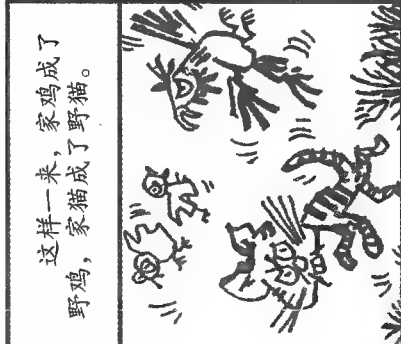 这样一来，家鸡成了
野鸡，家猫成了野猫。